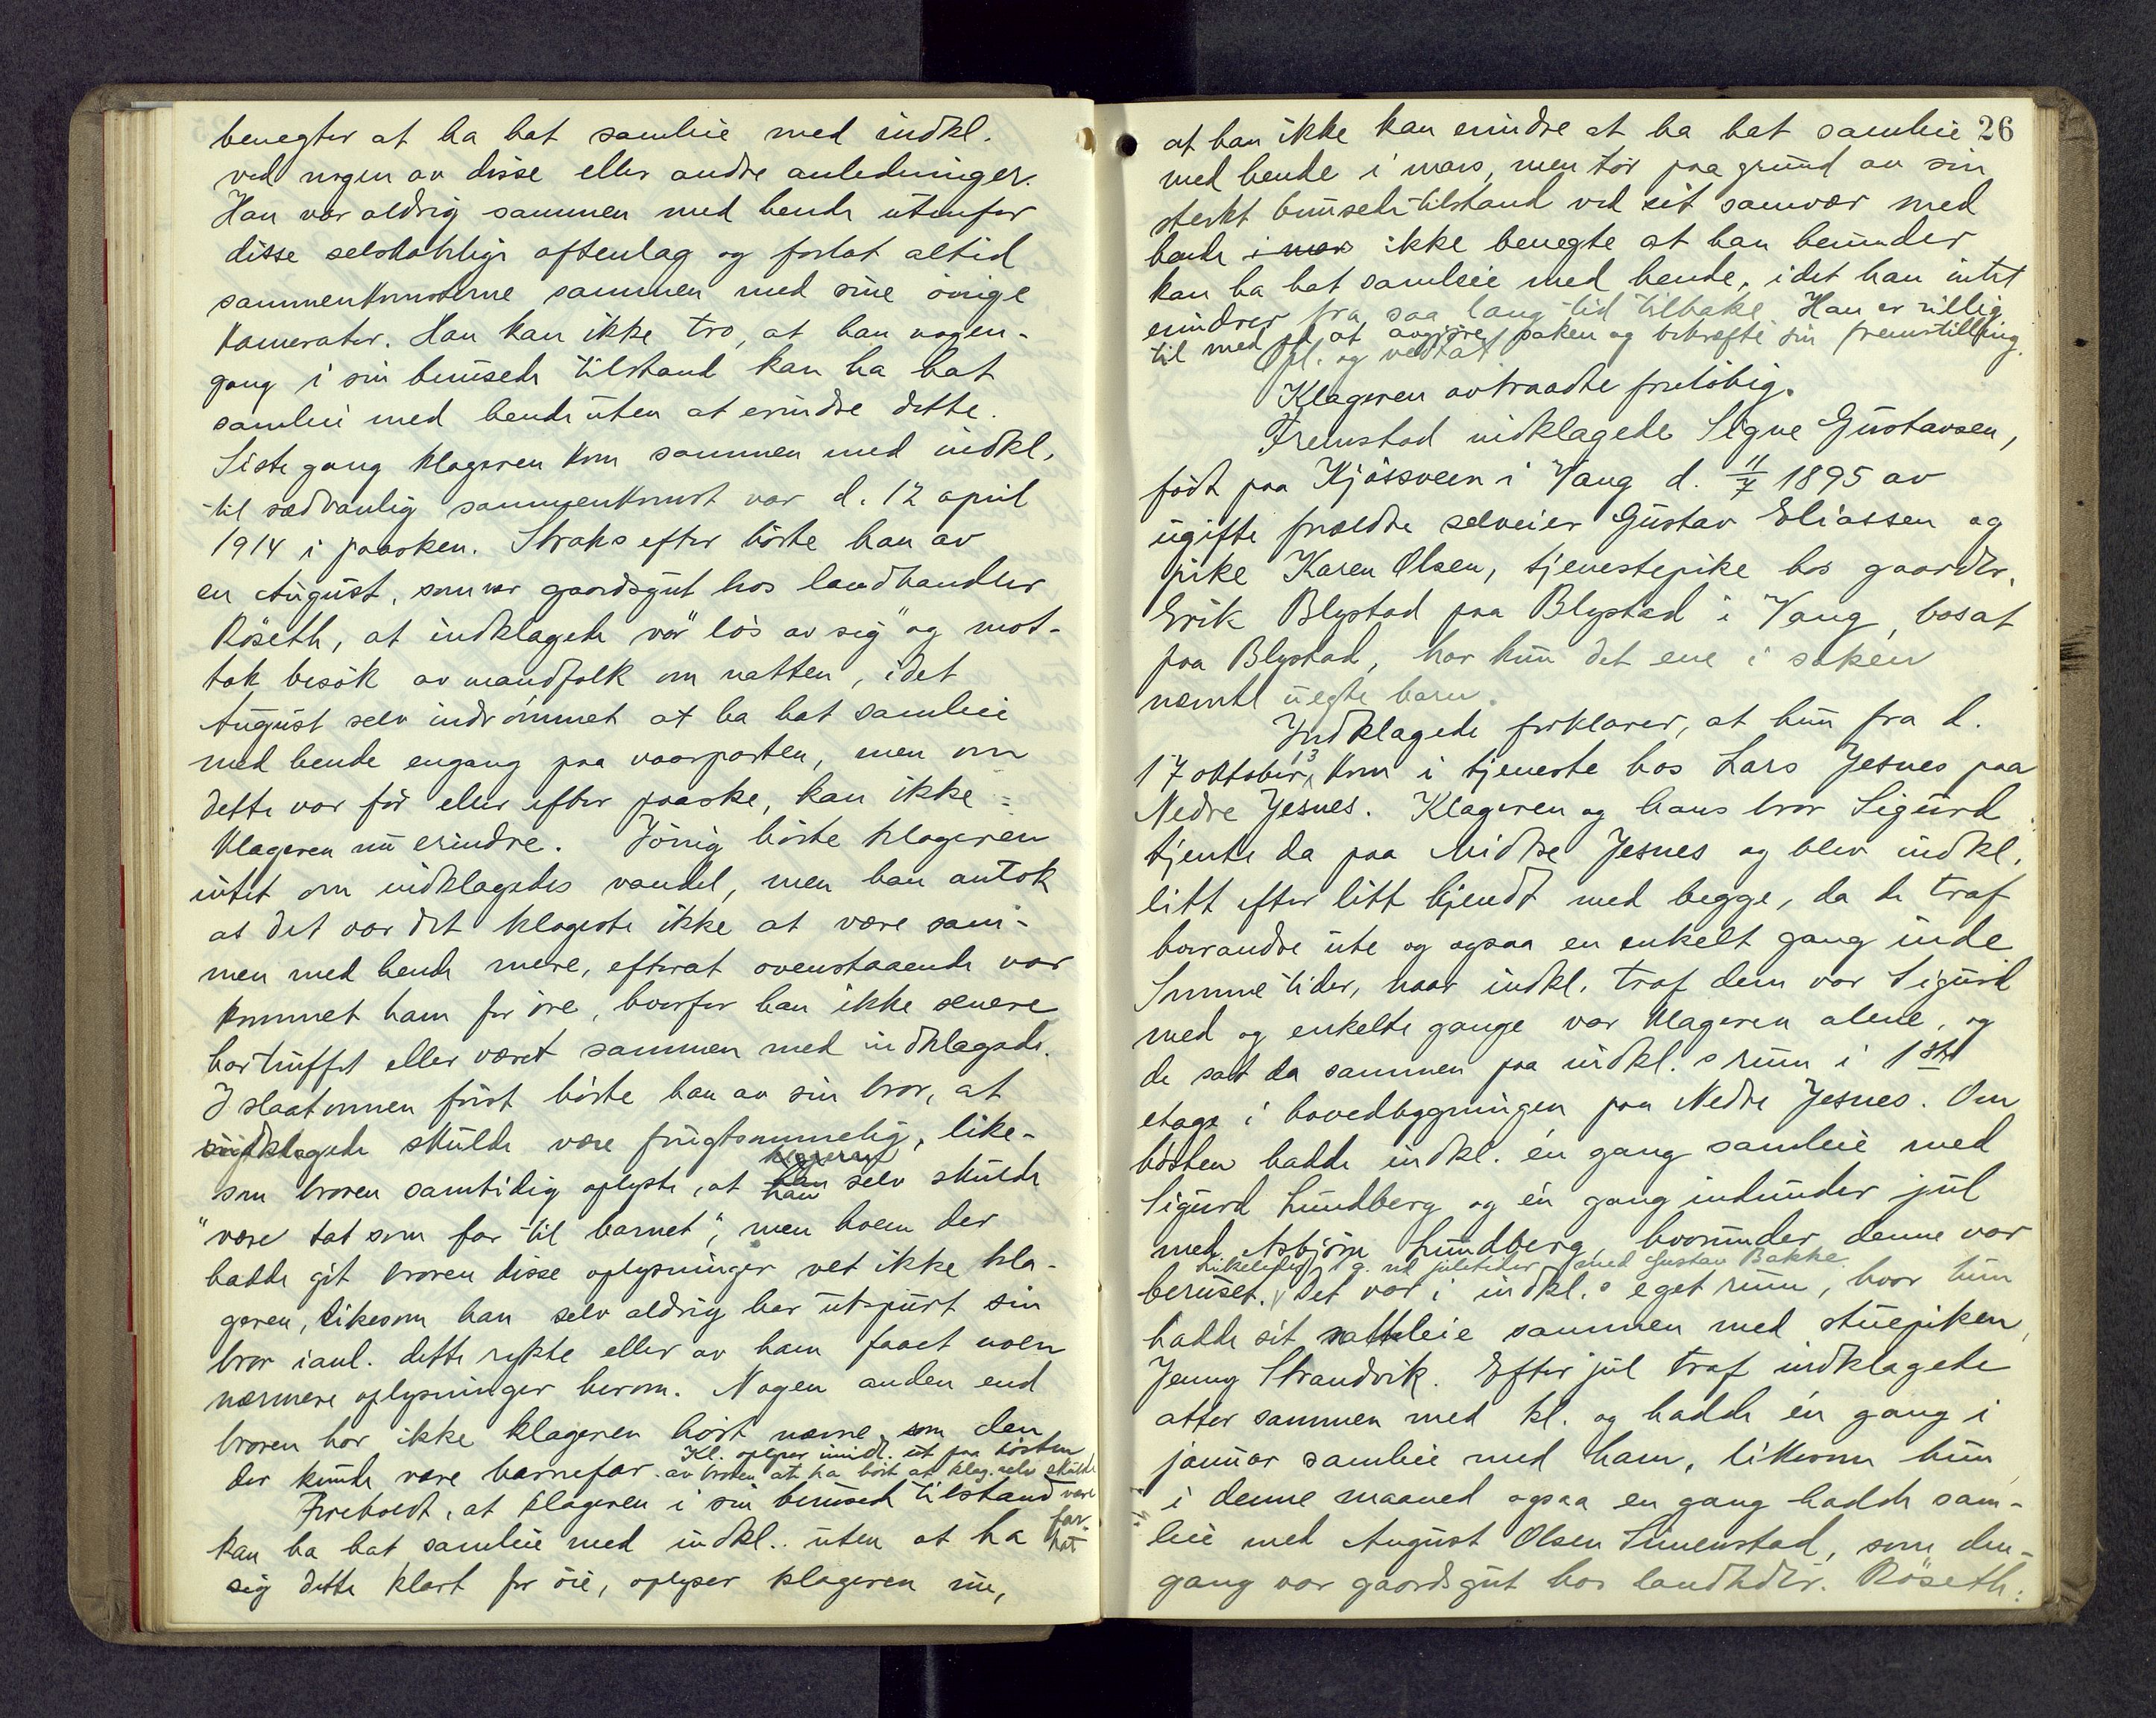 benegter at ha hat samleie med indkl.
ved nogen av disse eller andre anledninger.
Han var aldrig sammen med hende utenfor
disse selskabelige aftenlag og forlot altid
sammenkomsterne sammen med sine övrige
kamerater. Han kan ikke tro, at han nogen-
gang i sin berusede tilstand kan ha hat
samleie med hende uten at erindre dette.
Siste gang klageren kom sammen med indkl.
til sædvanlig sammenkomst var d. 12 april
1914 i paasken. Straks efter hörte han av
en August, som var gaardsgut hos landhandler
Röseth, at indklagede var "lös av sig" og mot-
tok besök av mandfolk om natten, idet
August selv indrömmet at ha hat samleie
med hende engang paa vaarparten, men om
dette var för eller efter paaske, kan ikke
klageren nu erindre. Iövrig hörte klageren
intet om indklagedes vandel, men han antok
at det var det klogeste ikke at være sam-
men med hende mere, efterat ovenstaaende var
kommet ham for öre, hvorfor han ikke senere
har truffet eller været sammen med indklagede.
I slaatonnen först hörte han av sin bror, at
indklagede skulde være frugtsommelig, like-
som broren samtidig oplyste, at han selv skulde
"være tat som far til barnet", men hvem der
hadde git broren disse oplysninger vet ikke kla-
geren, likesom han selv aldrig har utspurt sin
bror i anl. dette rykte eller av ham faaet noen
nærmere oplysninger herom. Nogen anden end
broren har ikke klageren hört nævne, som den
der kunde være barnefar. Kl. oplyser imidl. ut paa hösten
av broren at ha hört at klag. selv skulde være far.
Foreholdt, at klageren i sin berused tilstand
kan ha hat samleie med indkl. uten at ha hat
sig dette klart for öie, oplyser klageren nu,
26
at han ikke kan erindre at ha hat samleie
med hende i mars, men tör paa grund av sin
sterkt berusede tilstand ved sit samvær med
hende i mars ikke benegte at han herunder
kan ha hat samleie med hende, idet han intet
erindrer fra saa lang tid tilbake. Han er villig
til med ed at avgjöre saken og bekræfte sin fremstilling.
Opl. og vedtat
Klageren avtraadte forelöbig.
Fremstod indklagede Signe Gustavsen,
födt paa Kjösveen i Vang d. 11/7 1895 av
ugifte forældre selveier Gustav Eliassen og
pike Karen Olsen, tjenestepike hos gaardbr.
Erik Blystad paa Blystad i Vang, bosat
paa Blystad, har kun det ene i saken
nævnte uegte barn.
Indklagede forklarer, at hun fra d.
17 oktober 13 kom i tjeneste hos Lars Jesnes paa
Nedre Jesnes. Klageren og hans bror Sigurd
tjente da paa Midtre Jesnes og blev indkl.
litt efter litt kjendt med begge, da de traf
hverandre ute og ogsaa en enkelt gang inde
Somme tider, naar indkl. traf dem var Sigurd
med og enkelte gange var klageren alene, og
de sat da sammen paa indkl.s rum i 1ste
etage i hovedbygningen paa Nedre Jesnes. Om
hösten hadde indkl. én gang samleie med
Sigurd Lundberg og én gang indunder jul
med Asbjörn Lundberg, hvorunder denne var
beruset. Likeledes 1 g. ved juletider med Gustav Bakke.
Det var i indkl.s eget rum, hvor hun
hadde sit natteleie sammen med stuepiken
Jenny Strandvik. Efter jul traf indklagede
atter sammen med kl. og hadde én gang i
januar samleie med ham, likesom hun
i denne maaned ogsaa en gang hadde sam-
leie med August Olsen Simenstad, som den-
gang var gaardsgut hos landhdlr. Röseth.